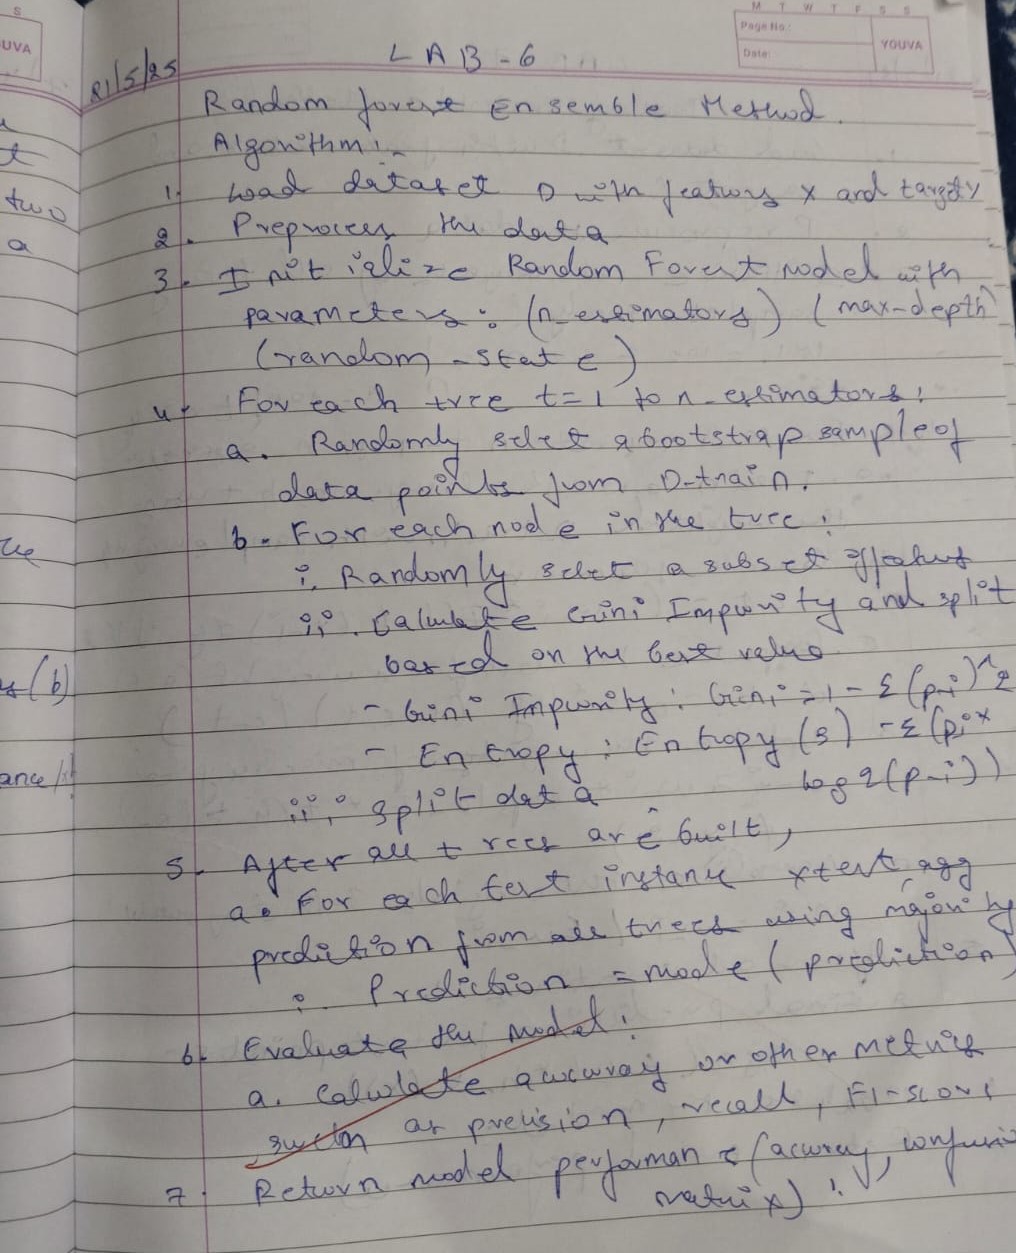 S
UVA
M T W T F S S
Page No.:
Date:
YOUVA
21/5/25
LAB-6
Random forest Ensemble Method.
Algorithm:-
1. Load dataset D with features X and target y
2. Preprocess the data
3. Initialize Random Forest model with
parameters: (n_estimators) (max-depth)
(random-state)
4. For each tree t=1 to n_estimators:
a. Randomly select a bootstrap sample of
data points from D-train.
b. For each node in the tree:
i. Randomly select a subset of features
ii. Calculate Gini Impurity and split
based on the best value
- Gini Impurity: Gini = 1 - Σ(p-i)^2
- Entropy: Entropy(s) -Σ(pi*
log2(p-i))
iii. split data
5. After all trees are built,
a. For each test instance xtest, agg
prediction from all trees using majority
: Prediction = mode (prediction)
6. Evaluate the model:
a. Calculate accuracy or other metrics
such as precision, recall, F1-score
7. Return model performance (accuracy, confusion
matrix)!
two
a
(b)
ance